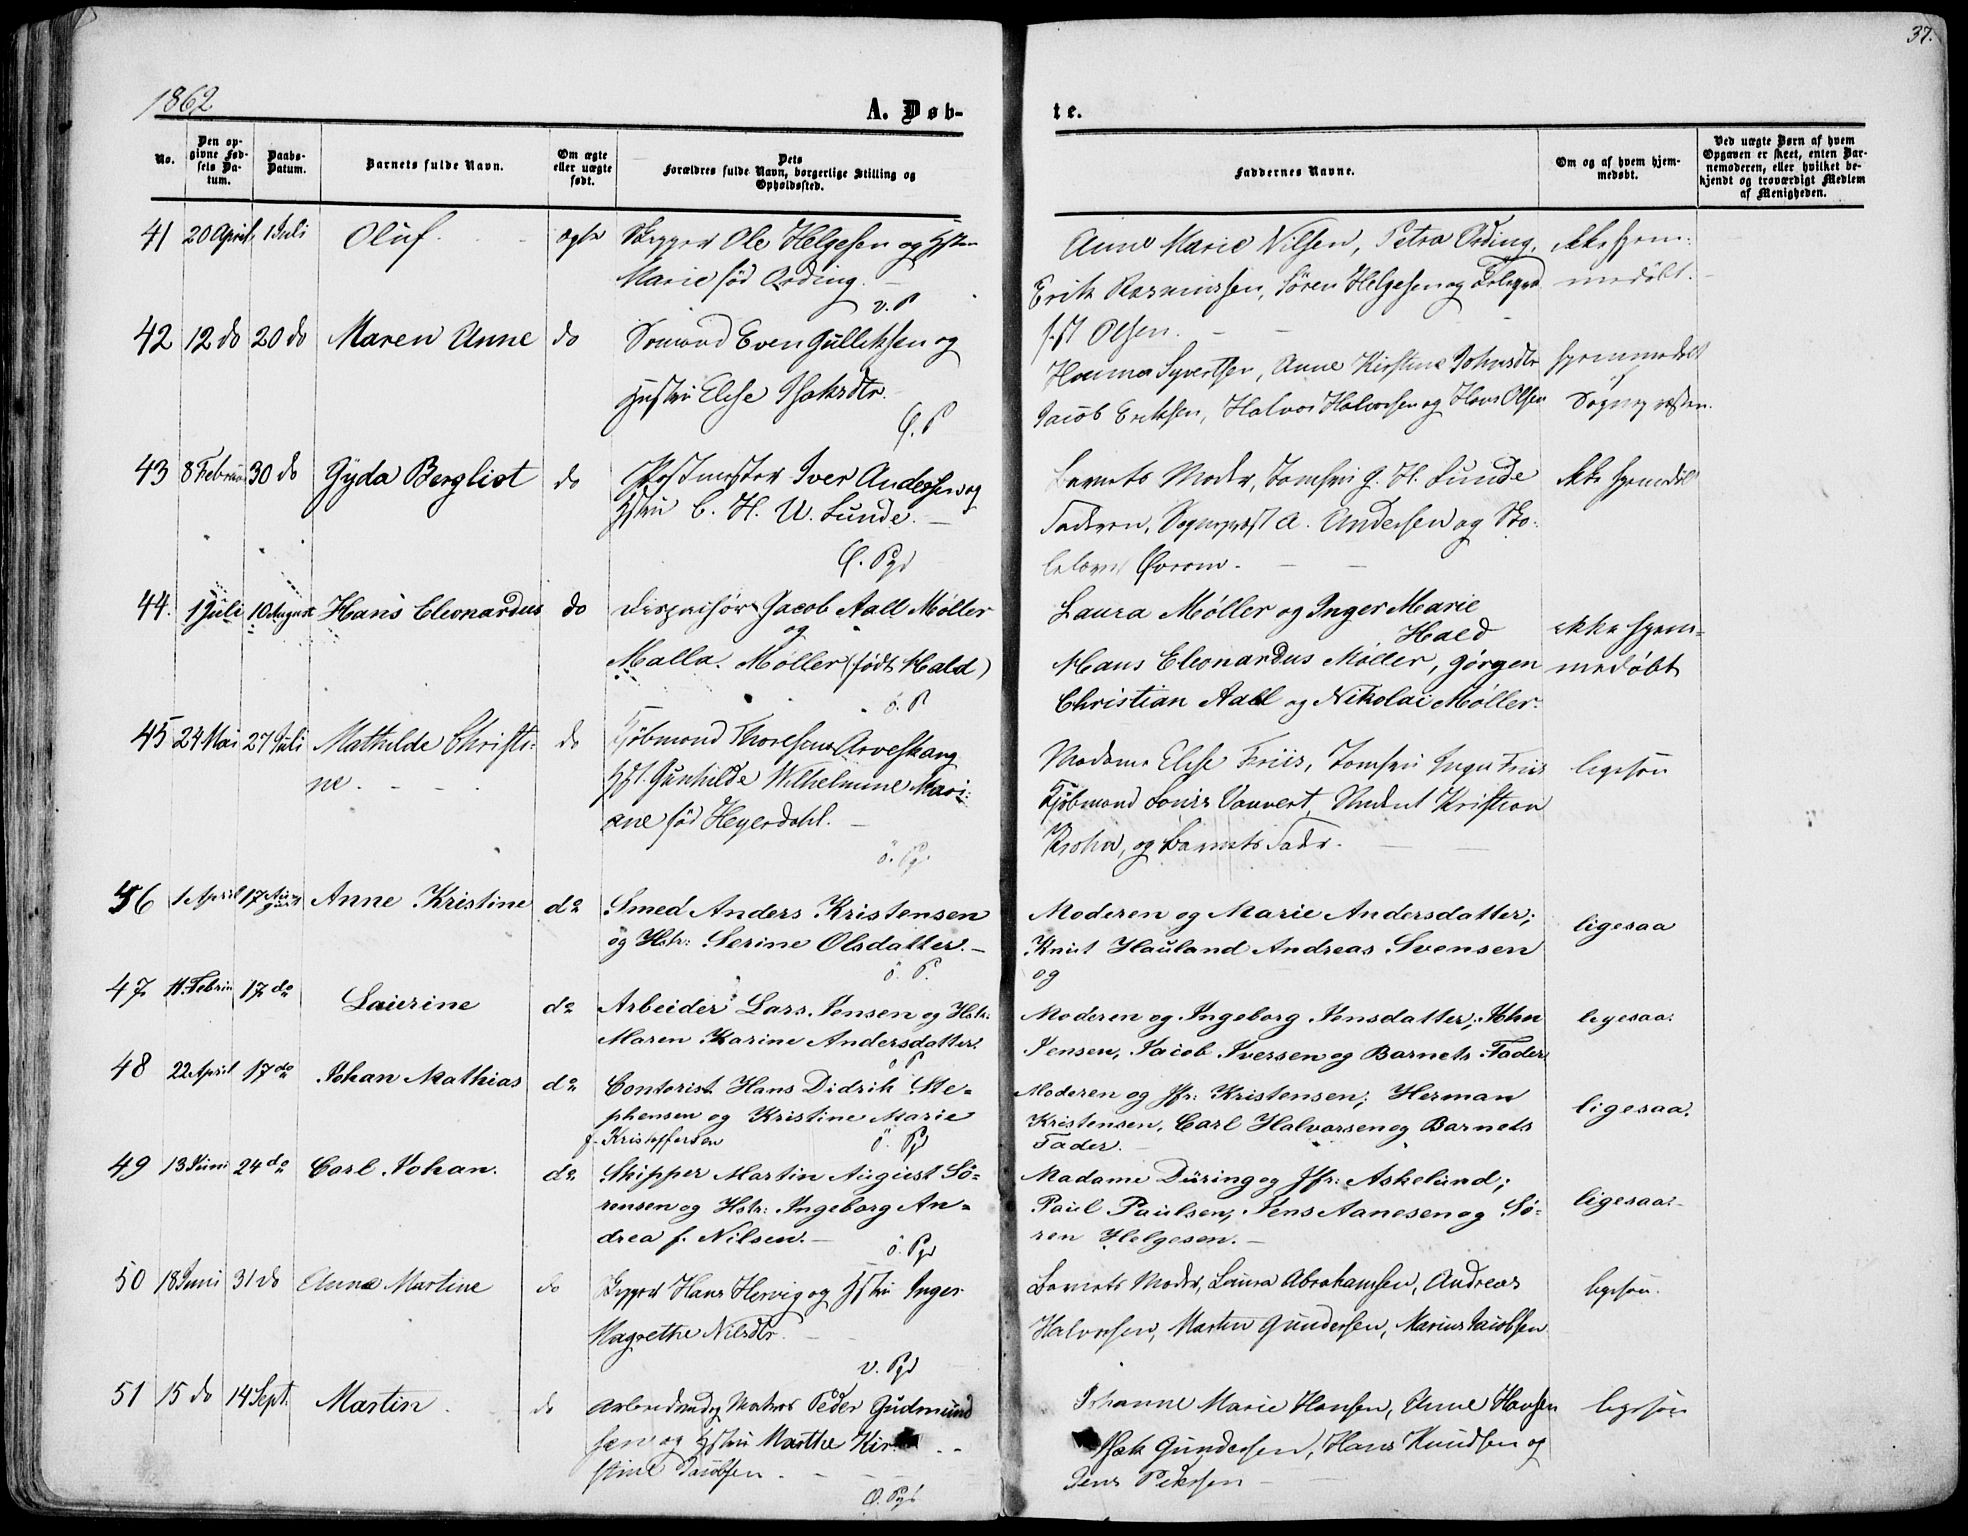 37.
1862
A. Døb-
te.
No.
Den op-
givne Fød-
sels Da-
tum.
Daabs-
Datum.
Barnets fulde Navn.
Om ægte
eller uægte
født.
Dets
Forældres fulde Navn, borgerlige Stilling og
Opholdssted.
Faddernes Navne.
Om og af hvem hjem-
medøbt.
Ved uægte Børn af hvem
Opgaven er skeet, enten Bar-
nemoderen, eller hvilket be-
kjendt og troværdigt Medlem
af Menigheden.
41 20 April 1 Juli Oluf. ægte Skipper Ole Helgesen og Hstru
Marie fød Ording.
v. P
Anne Marie Nilsen, Petra Ording,
Erik Rasmussen, Sören Helgesen og
Olsen.
ikke hjem-
medøbt.
42 12 do 20 do Maren Anne do Sömand Even Gulliksen og
Hustru Elise Isaksdtr.
Ö. P
Hanna Syvertsen, Anne Kirstine Johnsdtr
Jacob Eriksen, Halvor Halvorsen og Hans Olsen
hjemmedøbt
Sognepræsten.
43 8 Februar 30 do Gyda Bergliot do Postmester Iver Andersen og
Hstru C. H. U. Lunde.
Ö. Pgd
Barnets Moder, Jomfru J. H. Lunde
Faderen, Sognepræst A. Andersen og Sko-
lelærer Øvrom.
ikke hjemdøbt
44. 1 Juli 10 August Hans Eleonardus do Dispachör Jacob Aall Møller
og
Malla Møller (født Hald)
ö. P
Laura Møller og Inger Marie
Hald
Hans Eleonardus Møller, Jörgen
Christian Aall og Nikolai Møller.
ikke hjem-
medøbt
45 24 Mai 27 Juli Mathilde Christi-
ne. do Kjöbmand Thorsen Arveskang
Hst. Gunhilde Wilhelmine Mari-
ane fød Heyerdahl.
ö. Pg.
Madam Elise Friis, Jomfru Inga Friis
Kjöbmand Louis Vauvert, Student Kristian
Krohn, og Barnets Fader.
ligesaa
46 1 April 17 August Anne Kristine do Smed Anders Kristensen
og Hstr: Serine Olsdatter.
ö. P.
Moderen og Marie Andersdatter;
Knut Hauland Andreas Svensen
og
ligesaa
47. 11. Februar 17 do Laurine do Arbeider Lars Jensen og Hstr:
Maren Karine Andersdatter.
ö P
Moderen og Ingeborg Jensdatter; John
Jensen, Jacob Iversen og Barnets Fader
ligesaa.
48 22 April 17 do Johan Mathias do Contorist Hans Didrik Ste-
phensen og Kristine Marie
f. Kristoffersen
ö. Pg
Moderen og Jfr: Kristensen; Herman
Kristensen, Carl Halvorsen og Barnets
Fader.
ligesaa.
49 13 Juni 24 do Carl Johan. do Skipper Martin August Sö-
rensen og Hstr: Ingeborg An-
drea f. Nilsen.
ö. Pgd
Madame Düring og Jfr: Askelund;
Paul Paulsen, Jens Aanesen og Sö-
ren Helgesen.
ligesaa.
50 18 Juni 31 do Anna Martine do Skipper Hans Hervig og Hstru Inger
Magrethe Nilsdtr.
v. Pgd
Barnets Moder, Laura Abrahamsen, Andreas
Halvorsen, Martin Gundersen, Marius Jacobsen
ligesaa.
51 15 do 14 Sept. Martin do Arbeidsmand og Matros Peder Gudmund
sen og Hstru Marthe Kir
stine Jacobsen.
Ö. Pgd
Johanne Marie Hansen, Anne Hansen
Isak Gundersen, Hans Knudsen og
Jens Pedersen
ligesaa